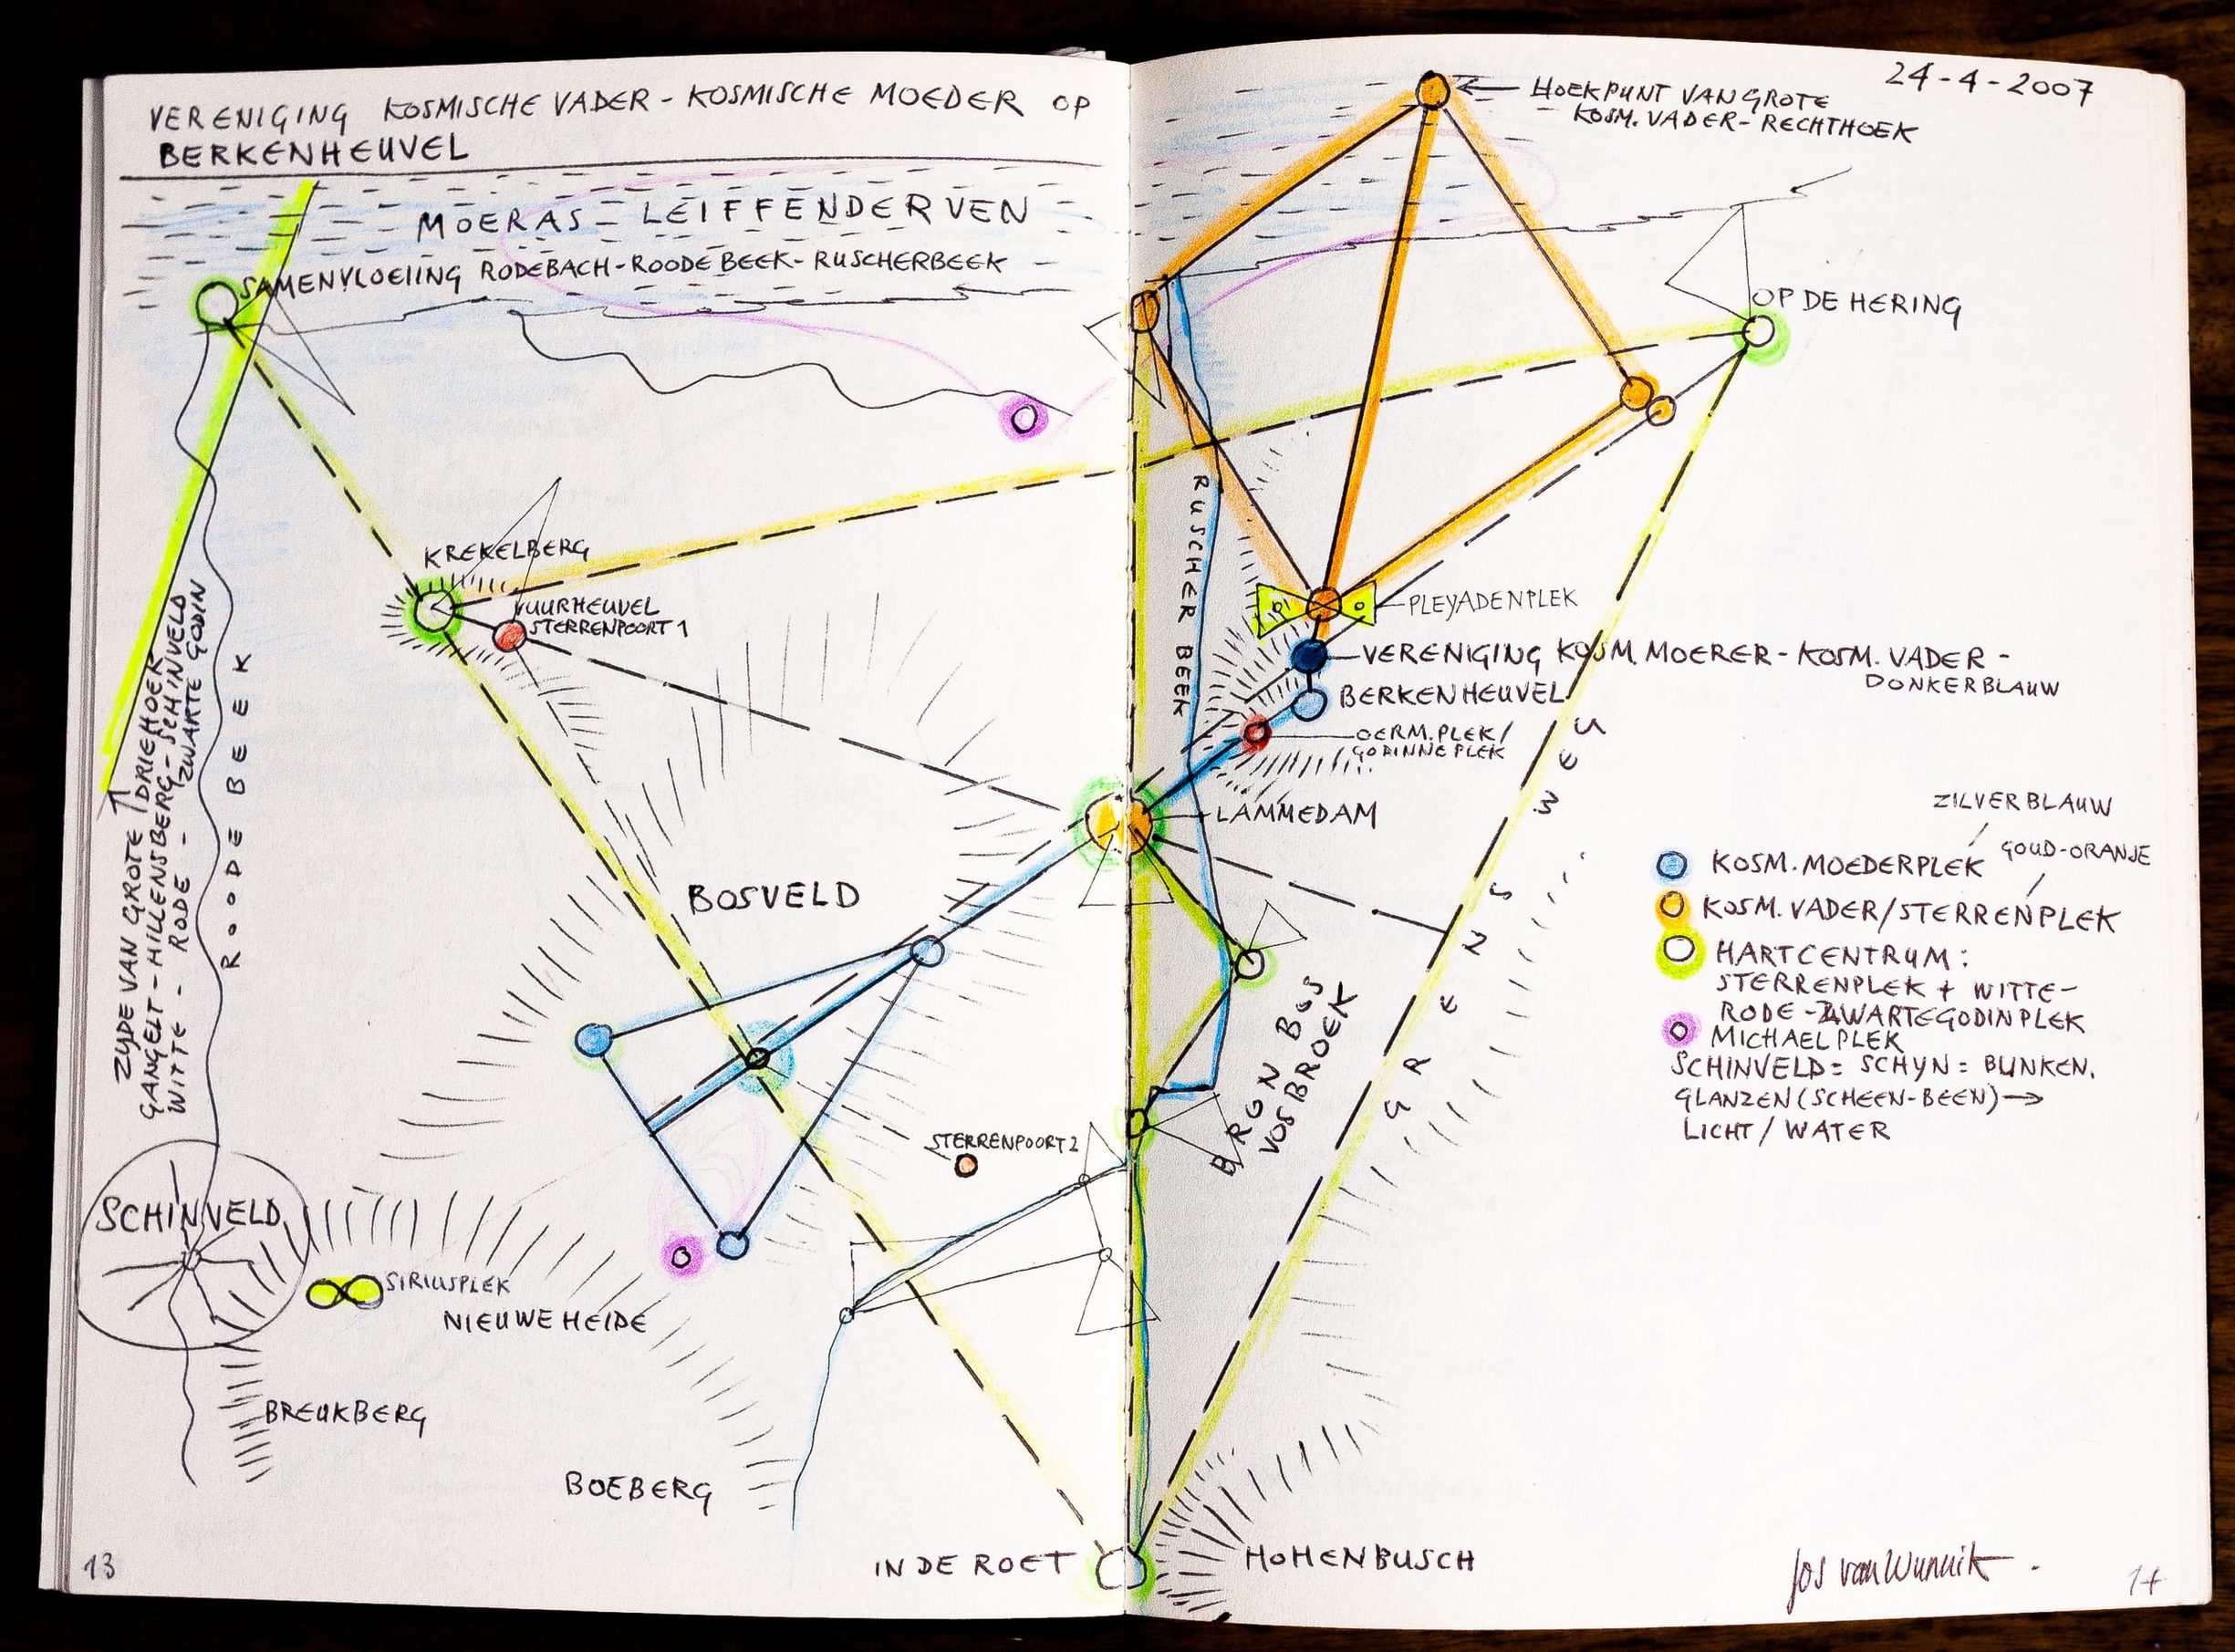 VERENIGING KOSMISCHE VADER - KOSMISCHE MOEDER OP
BERKENHEUVEL
MOERAS - LEIFFENDERVEN
SAMENVLOEIING RODEBACH - ROODE BEEK - RUSCHERBEEK
KREKELBERG
VUURHEUVEL
STERRENPOORT 1
ZIJDE VAN GROTE DRIEHOEK
GANGELT - HILLENSBERG - SCHINVELD
WITTE - RODE - ZWARTE GODIN
RODEBEEK
BOSVELD
STERRENPOORT 2
SCHINVELD
SIRIUSPLEK
NIEUWE HEIDE
BREUKBERG
BOEBERG
IN DE ROET
13
24-4-2007
HOEKPUNT VAN GROTE
KOSM. VADER - RECHTHOEK
OP DE HERING
RUSCHER BEEK
PLEYADENPLEK
VERENIGING KOSM. MOERER - KOSM. VADER -
DONKERBLAUW
BERKENHEUVEL
OERM. PLEK/
GODINNEPLEK
LAMMEDAM
GRENSWEG
BRGN BOS
VOSBROEK
ZILVERBLAUW
KOSM. MOEDERPLEK
GOUD-ORANJE
KOSM. VADER/STERRENPLEK
HARTCENTRUM:
STERRENPLEK + WITTE-
RODE - ZWARTEGODINPLEK
MICHAELPLEK
SCHINVELD = SCHYN = BLINKEN.
GLANZEN (SCHEEN-BEEN) →
LICHT / WATER
HOHENBUSCH
Jos van Wunnik
14